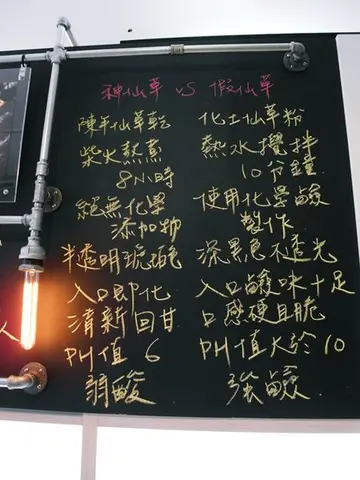 神仙草 VS 假仙草
陳年仙草乾
柴火熬煮
8小時
絕無化學
添加物
半透明琥珀色
入口即化
清新回甘
PH值 6
弱酸
化土仙草粉
熱水攪拌
10分鐘
使用化學鹼
製作
深黑色不透光
入口鹼味十足
口感硬且脆
PH值大於10
強鹼
人